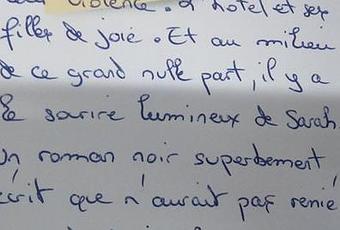 violence. L'hôtel et ses
filles de joie. Et au milieu
de ce grand nulle part, il y a
le sourire lumineux de Sarah
Un roman noir superbement
écrit que n'aurait pas renié